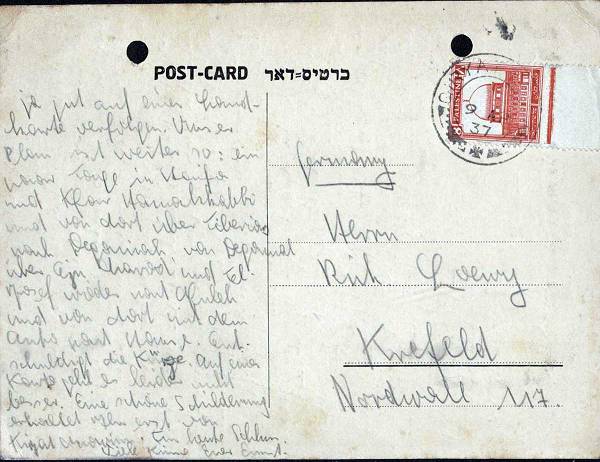 POST-CARD כרטיס=דאר
PALESTINE
37
ja gut auf einer Land-
karte verfolgen. Unser
Plan ist weiter so: ein
paar Tage in Haifa
und Kfar Hamakkabbi
und von dort über Tiberias
nach Deganiah, von Deganiah
über Ejn Charod und Tel
Josef wieder nach Afuleh
und von dort mit dem
Auto nach Hause. Ent-
schuldigt die Kürze. Auf einer
Karte geht es leider nicht
besser. Eine schöne Schilderung
erhaltet Ihr erst von
Ein
Viele Küsse Euer Ernst.
Germany
Herrn
Loewy
Krefeld
Nordwall 117.